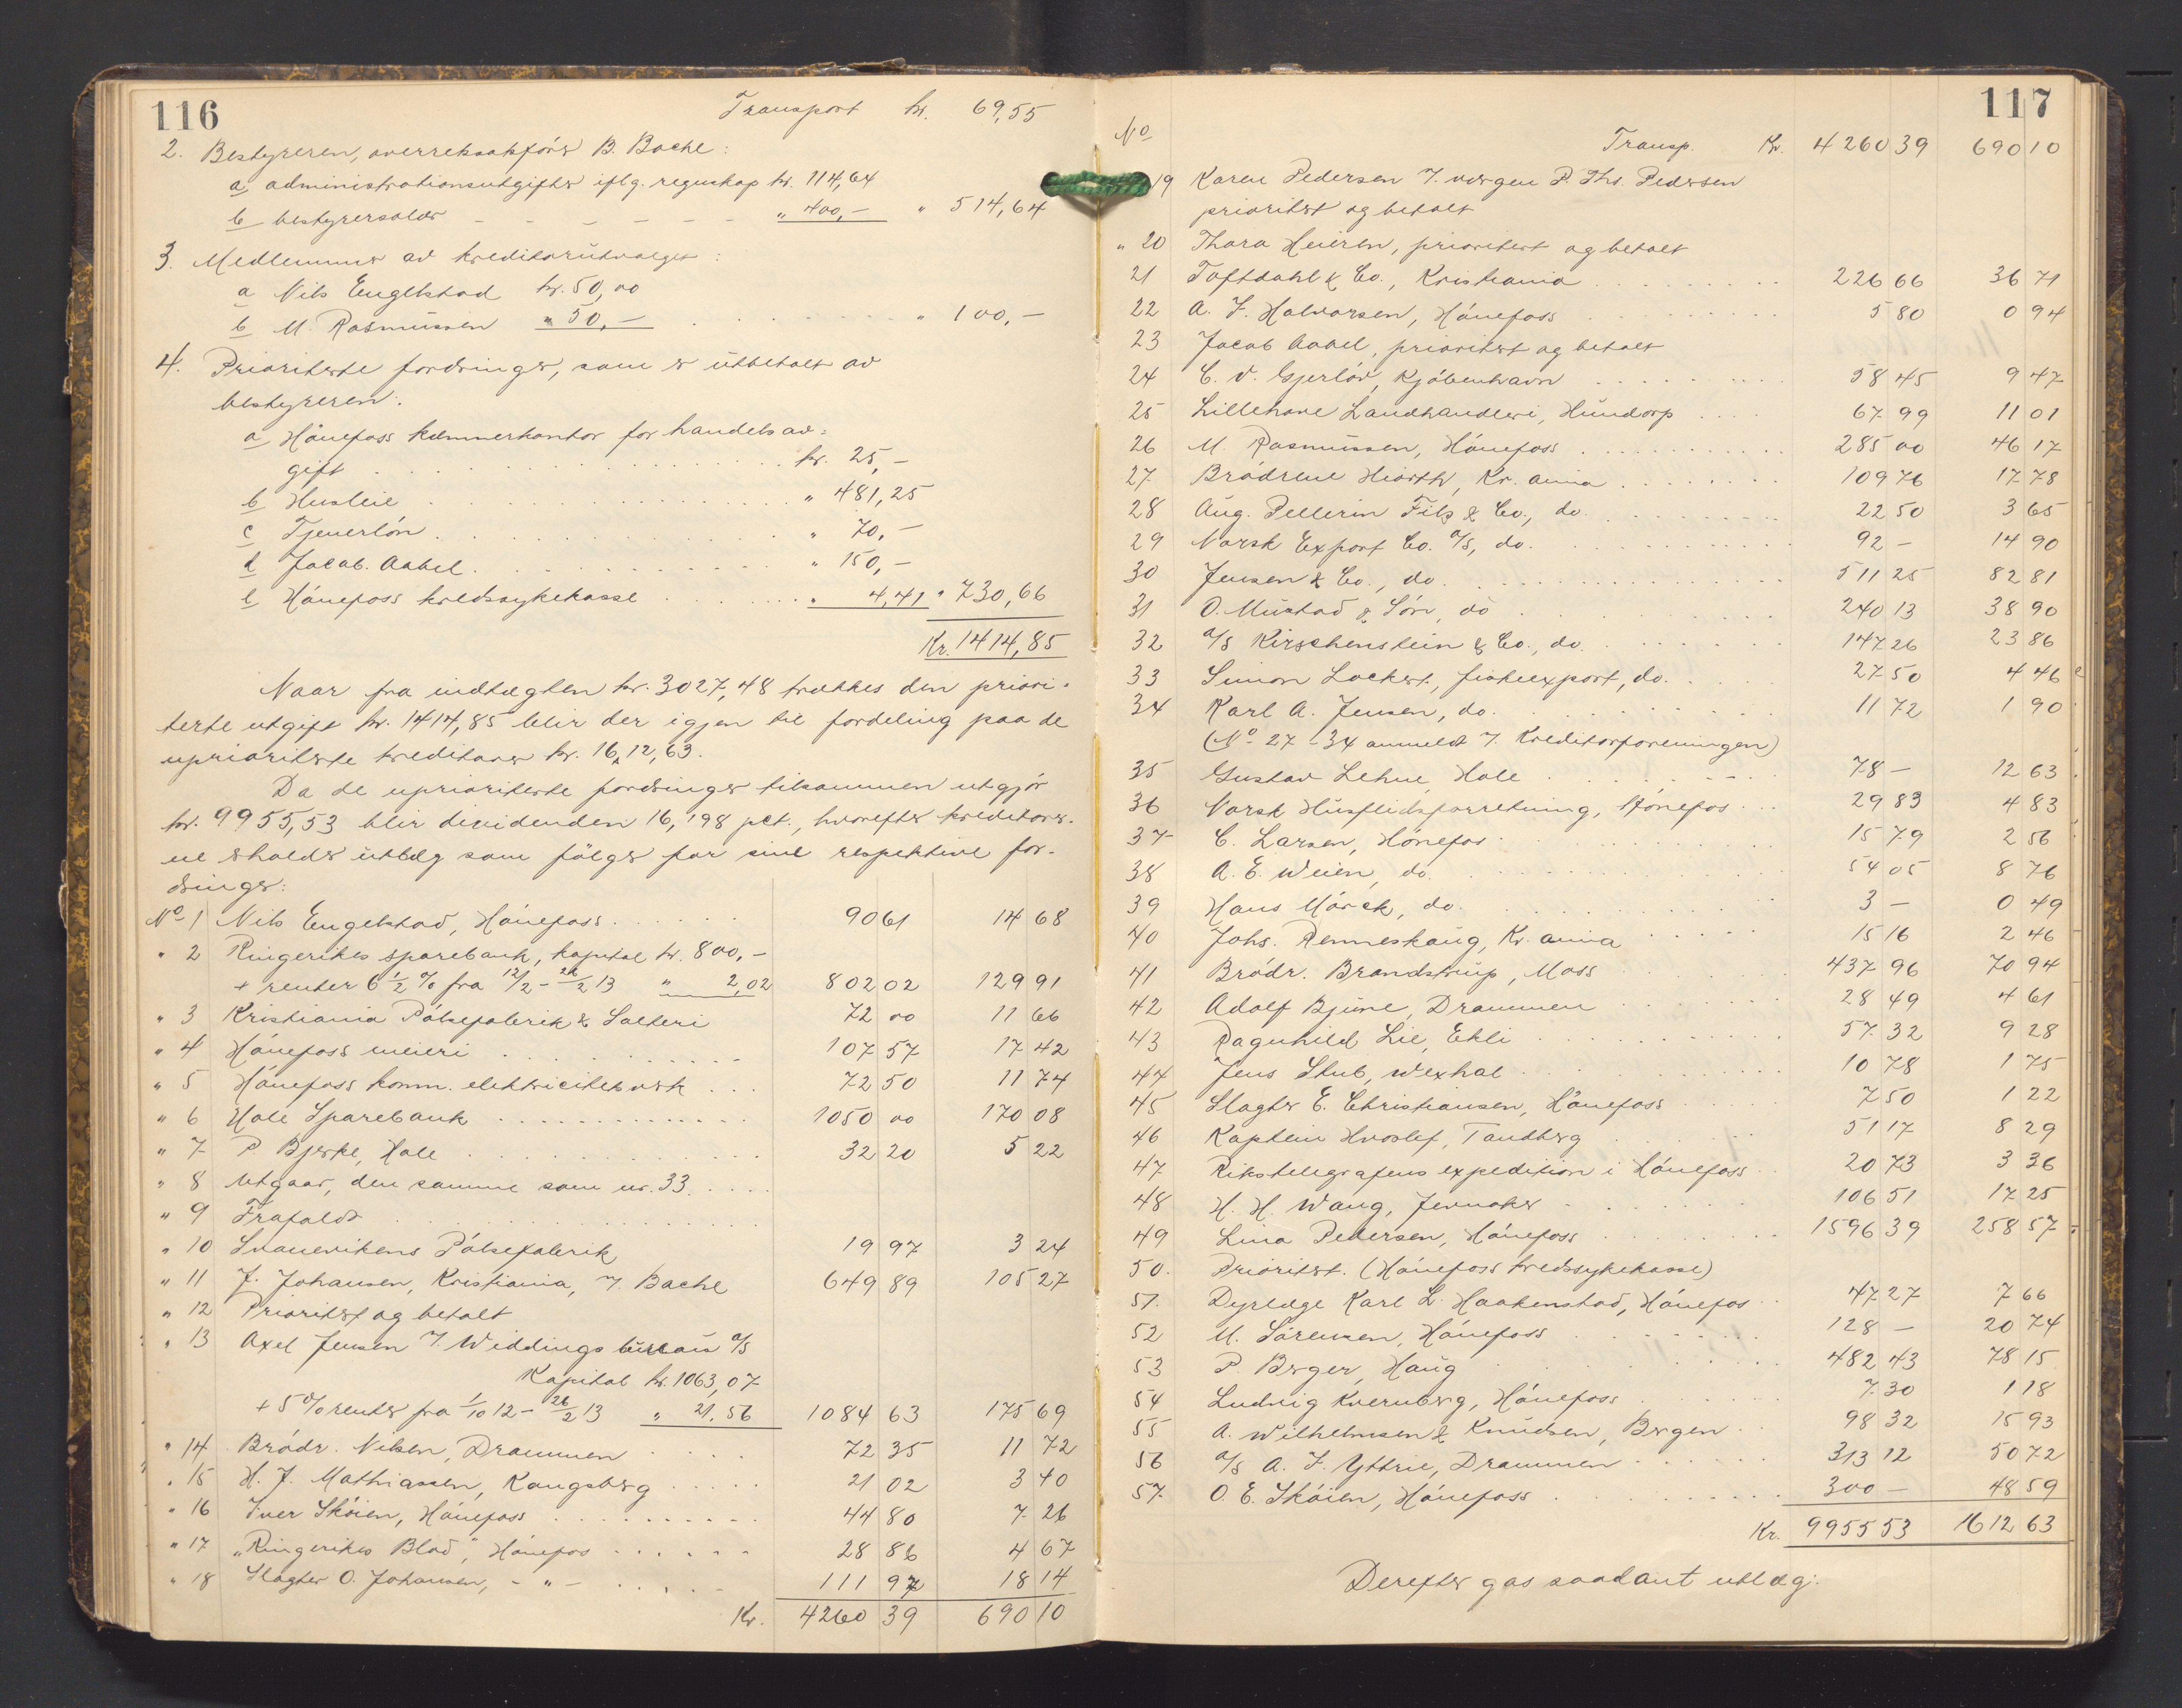 116
Transport kr. 69,55
2. Bestyreren, overretssakfører B. Bache:
a administrationsutgifter iflg. regnskap kr. 114,64
b bestyrersalær - - - - - - " 400,- " 514,64
3. Medlemmer av kreditorutvalget:
a Nils Engelstad kr. 50,00
b M. Rasmussen " 50,- " 100,-
4. Prioriterte fordringer, som er utbetalt av
bestyreren:
a Hønefoss kæmnerkontor for handelsav=
gift kr. 25,-
b Husleie " 481,25
c Tjenerløn " 70,-
d Jacob Aabel " 150,-
e Hønefoss kredssykekasse " 4,41 " 730,66
Kr. 1414,85
Naar fra indtægten kr. 3027,48 trækkes den priori-
terte utgift kr. 1414,85 blir der igjen til fordeling paa de
uprioriterte kreditorer kr. 1612,63.
Da de uprioriterte fordringer tilsammen utgjør
kr. 9955,53 blir dividenden 16,198 pct., hvorefter kreditorer-
ne erholder utlæg som følger for sine respektive for-
dringer:
No 1 Nils Engelstad, Hønefoss 90 61 14 68
" 2 Ringerikes sparebank, kapital kr. 800,-
+ renter 6 1/2 % fra 12/2 - 26/2 13 " 2,02 802 02 129 91
" 3 Kristiania Pølsefabrik & Salteri 72 00 11 66
" 4 Hønefoss meieri 107 57 17 42
" 5 Hønefoss komm. elektricitetsverk 72 50 11 74
" 6 Hole Sparebank 1050 00 170 08
" 7 P. Bjerke, Hole 32 20 5 22
" 8 Utgaar, den samme som nr. 33
" 9 Frafaldt
" 10 Svanevikens Pølsefabrik 19 97 3 24
" 11 J. Johansen, Kristiania, v. Bache 649 89 105 27
" 12 Prioritert og betalt
" 13 Axel Jensen v. Widdings bureau A/S
Kapital kr. 1063,07
+ 5 % renter fra 1/10 12 - 26/2 13 " 21,56 1084 63 175 69
" 14 Brødr. Nilsen, Drammen 72 35 11 72
" 15 H. J. Mathiassen, Kongsberg 21 02 3 40
" 16 Iver Skøien, Hønefoss 44 80 7 26
" 17 "Ringerikes Blad", Hønefos 28 86 4 67
" 18 Slagter O. Johansen, - " - 111 97 18 14
Kr. 4260 39 690 10
117
No
Transp. Kr. 4260 39 690 10
19 Karen Pedersen v. vergen P. Ths. Pedersen
prioritert og betalt
" 20 Thora Heieren, prioritert og betalt
21 Toftdahl & Co., Kristiania 226 66 36 71
22 A. F. Halvorsen, Hønefoss 5 80 0 94
23 Jacob Aabel, prioritert og betalt
24 C. V. Gjerløv, Kjøbenhavn 58 45 9 47
25 Lillehove Landhandleri, Hundorp 67 99 11 01
26 M. Rasmussen, Hønefoss 285 00 46 17
27 Brødrene Hiorth, Kr. ania 109 76 17 78
28 Aug. Pellerin Fils & Co., do. 22 50 3 65
29 Norsk Export Co. A/S, do. 92 - 14 90
30 Jensen & Co., do. 511 25 82 81
31 O. Mustad & Søn, do 240 13 38 90
32 A/S Kirschenstein & Co., do. 147 26 23 86
33 Simon Lockert, fiskeexport, do. 27 50 4 46
34 Karl A. Jensen, do. 11 72 1 90
(No 27 - 34 anmeldt v. Kreditorforeningen)
35 Gustav Lehne, Hole 78 - 12 63
36 Norsk Husflidsforretning, Hønefos 29 83 4 83
37 C. Larsen, Hønefos 15 79 2 56
38 A. E. Weien, do. 54 05 8 76
39 Hans Mørck, do. 3 - 0 49
40 Johs. Renneskaug, Kr. ania 15 16 2 46
41 Brødr. Brandstrup, Moss 437 96 70 94
42 Adolf Bjune, Drammen 28 49 4 61
43 Ragnhild Lie, Ekli 57 32 9 28
44 Jens Skub, Wexhal 10 78 1 75
45 Slagter E. Christiansen, Hønefoss 7 50 1 22
46 Kaptein Hvoslef, Tandberg 51 17 8 29
47 Rikstelegrafens expedition i Hønefoss 20 73 3 36
48 H. H. Wang, Jevnaker 106 51 17 25
49 Lina Pedersen, Hønefoss 1596 39 258 57
50. Prioritert. (Hønefoss kredssykekasse)
51. Dyrlæge Karl L. Haakenstad, Hønefos 47 27 7 66
52 M. Sørensen, Hønefoss 128 - 20 74
53 P. Berger, Haug 482 43 78 15
54 Ludvig Kvernberg, Hønefoss 7 30 1 18
55 A. Wilhelmsen & Knudsen, Bergen 98 32 15 93
56 A/S A. F. Yttrie, Drammen 313 12 50 72
57. O. E. Skøien, Hønefoss 300 - 48 59
Kr. 9955 53 1612 63
Derefter gas saadant utlæg: